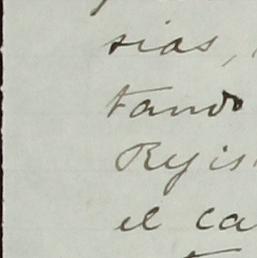 sias,
tando
Regis
el ca